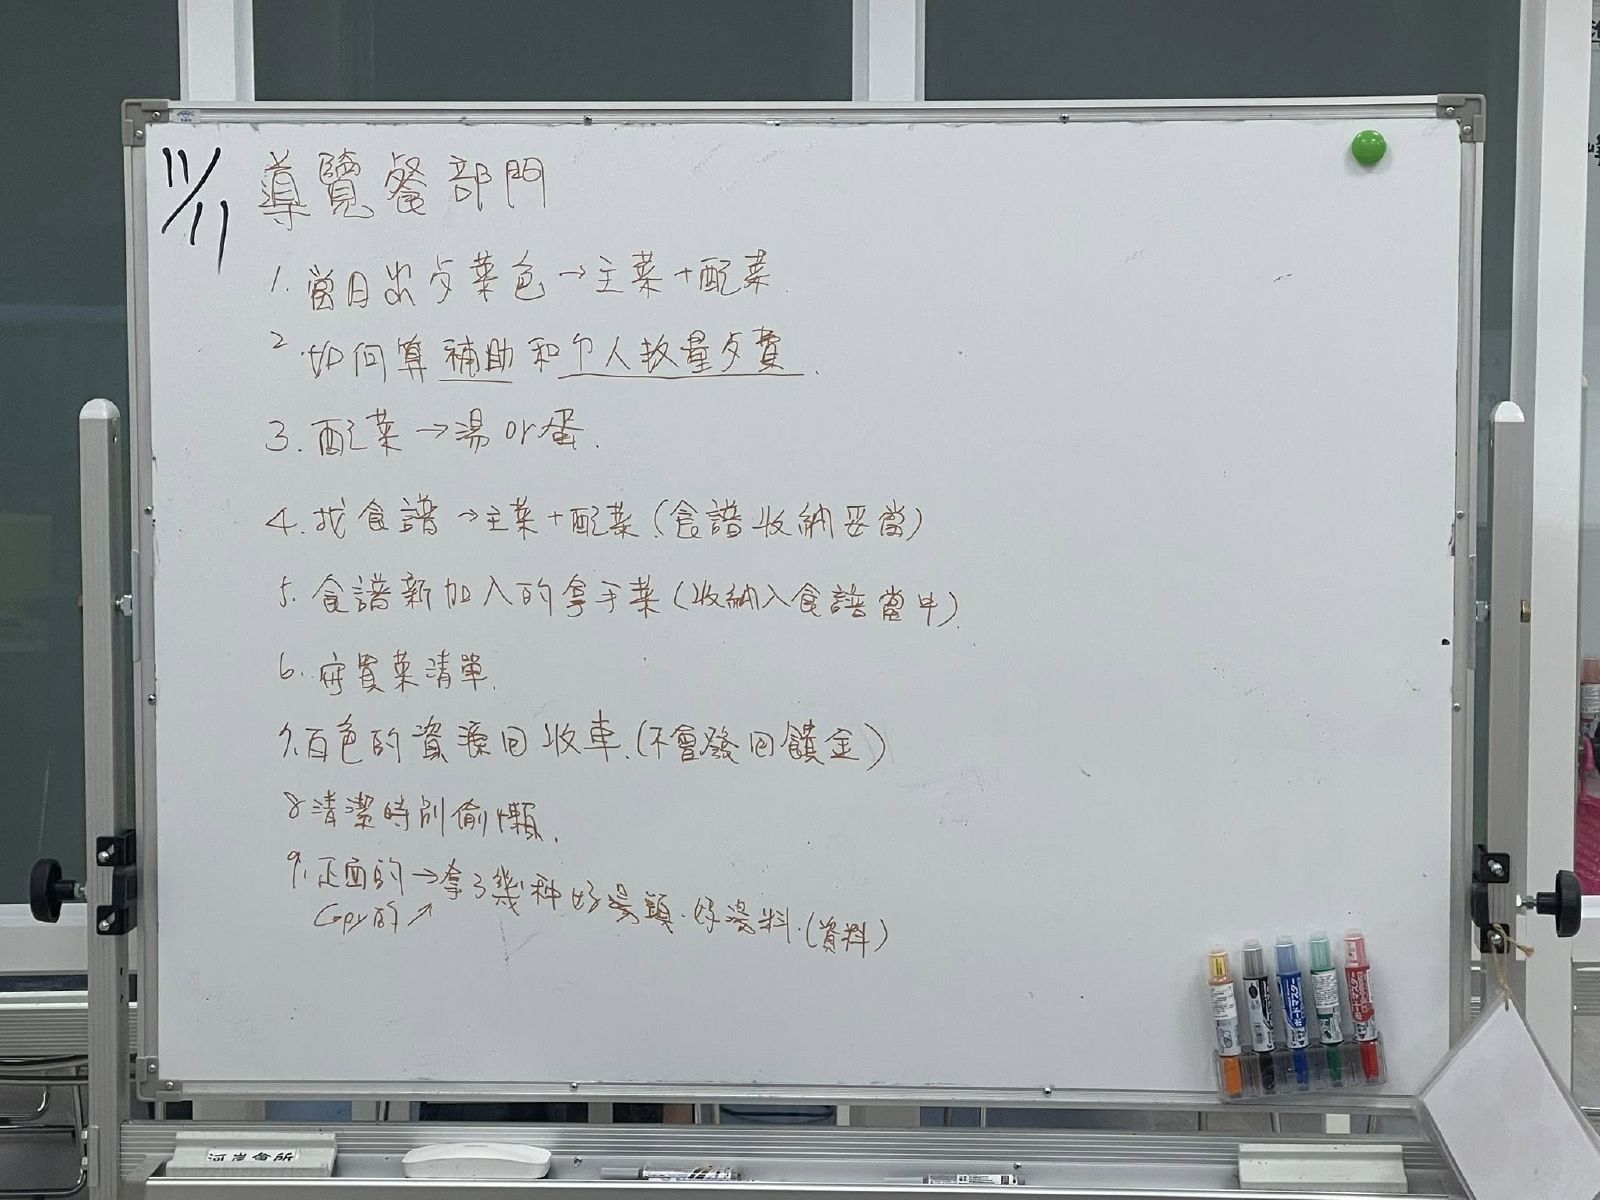 11/11 導覽餐部門
1. 當日出 菜色→主菜+配菜.
2. 如何算補助和个人数量 費.
3. 配菜→湯 or 蛋.
4. 找食譜→主菜+配菜(食譜收納妥當)
5. 食譜新加入的拿手菜(收納入食譜當中)
6. 買菜清單.
7. 百色的資源回收車.(不會發回饋金)
8 清潔時別偷懶.
9. 正面的→拿了幾種好湯頭.好湯料.(資料)
Copy的↗
河岸會所